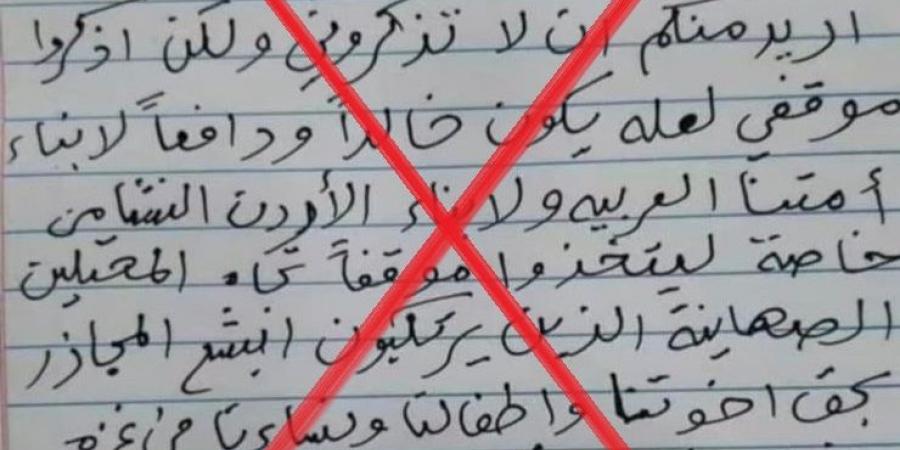 اريد منكم ان لا تذكروني ولكن اذكروا
موقفي لعله يكون خالداً ودافعاً لابناء
أمتنا العربيه ولابناء الأردن النشامى
خاصة ليتخذوا موقفاً تجاه المحتلين
الصهاينة الذين يرتكبون ابشع المجازر
بحق اخوتنا واطفالنا ونساءنا في غزه